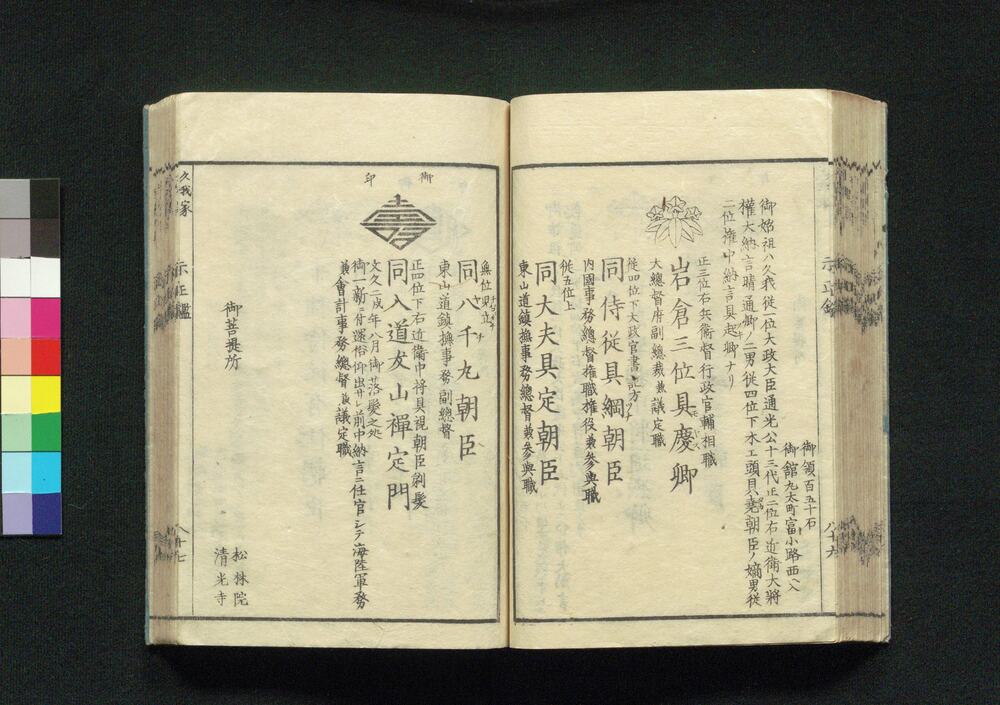 御領百五十石
御館九太町富小路西入
御始祖ハ久我従一位大政大臣通光公十三代正二位右近衛大將
權大納言晴通卿ノ二男従四位下木工頭具堯朝臣ノ嫡男従
二位権中納言具起卿ナリ
正三位右兵衛督行政官輔相職
岩倉三位具慶卿
大總督府副總裁兼議定職
従四位下大政官書記方
同侍従具綱朝臣
内國事務總督権職権役兼参與職
従五位上
同大夫具定朝臣
東山道鎮撫事務總督兼参與職
八十六
御印
無位
同八千丸朝臣
東山道鎮撫事務副總督
正四位下右近衛中将具視朝臣剃髪
同入道友山禅定門
文久二戌年八月御落髪之処
御一新ニ付還俗仰出サレ前中納言ニ任官シテ海陸軍務
兼會計事務總督兼議定職
御菩提所
松林院
清光寺
久我家
示正鑑
八十七